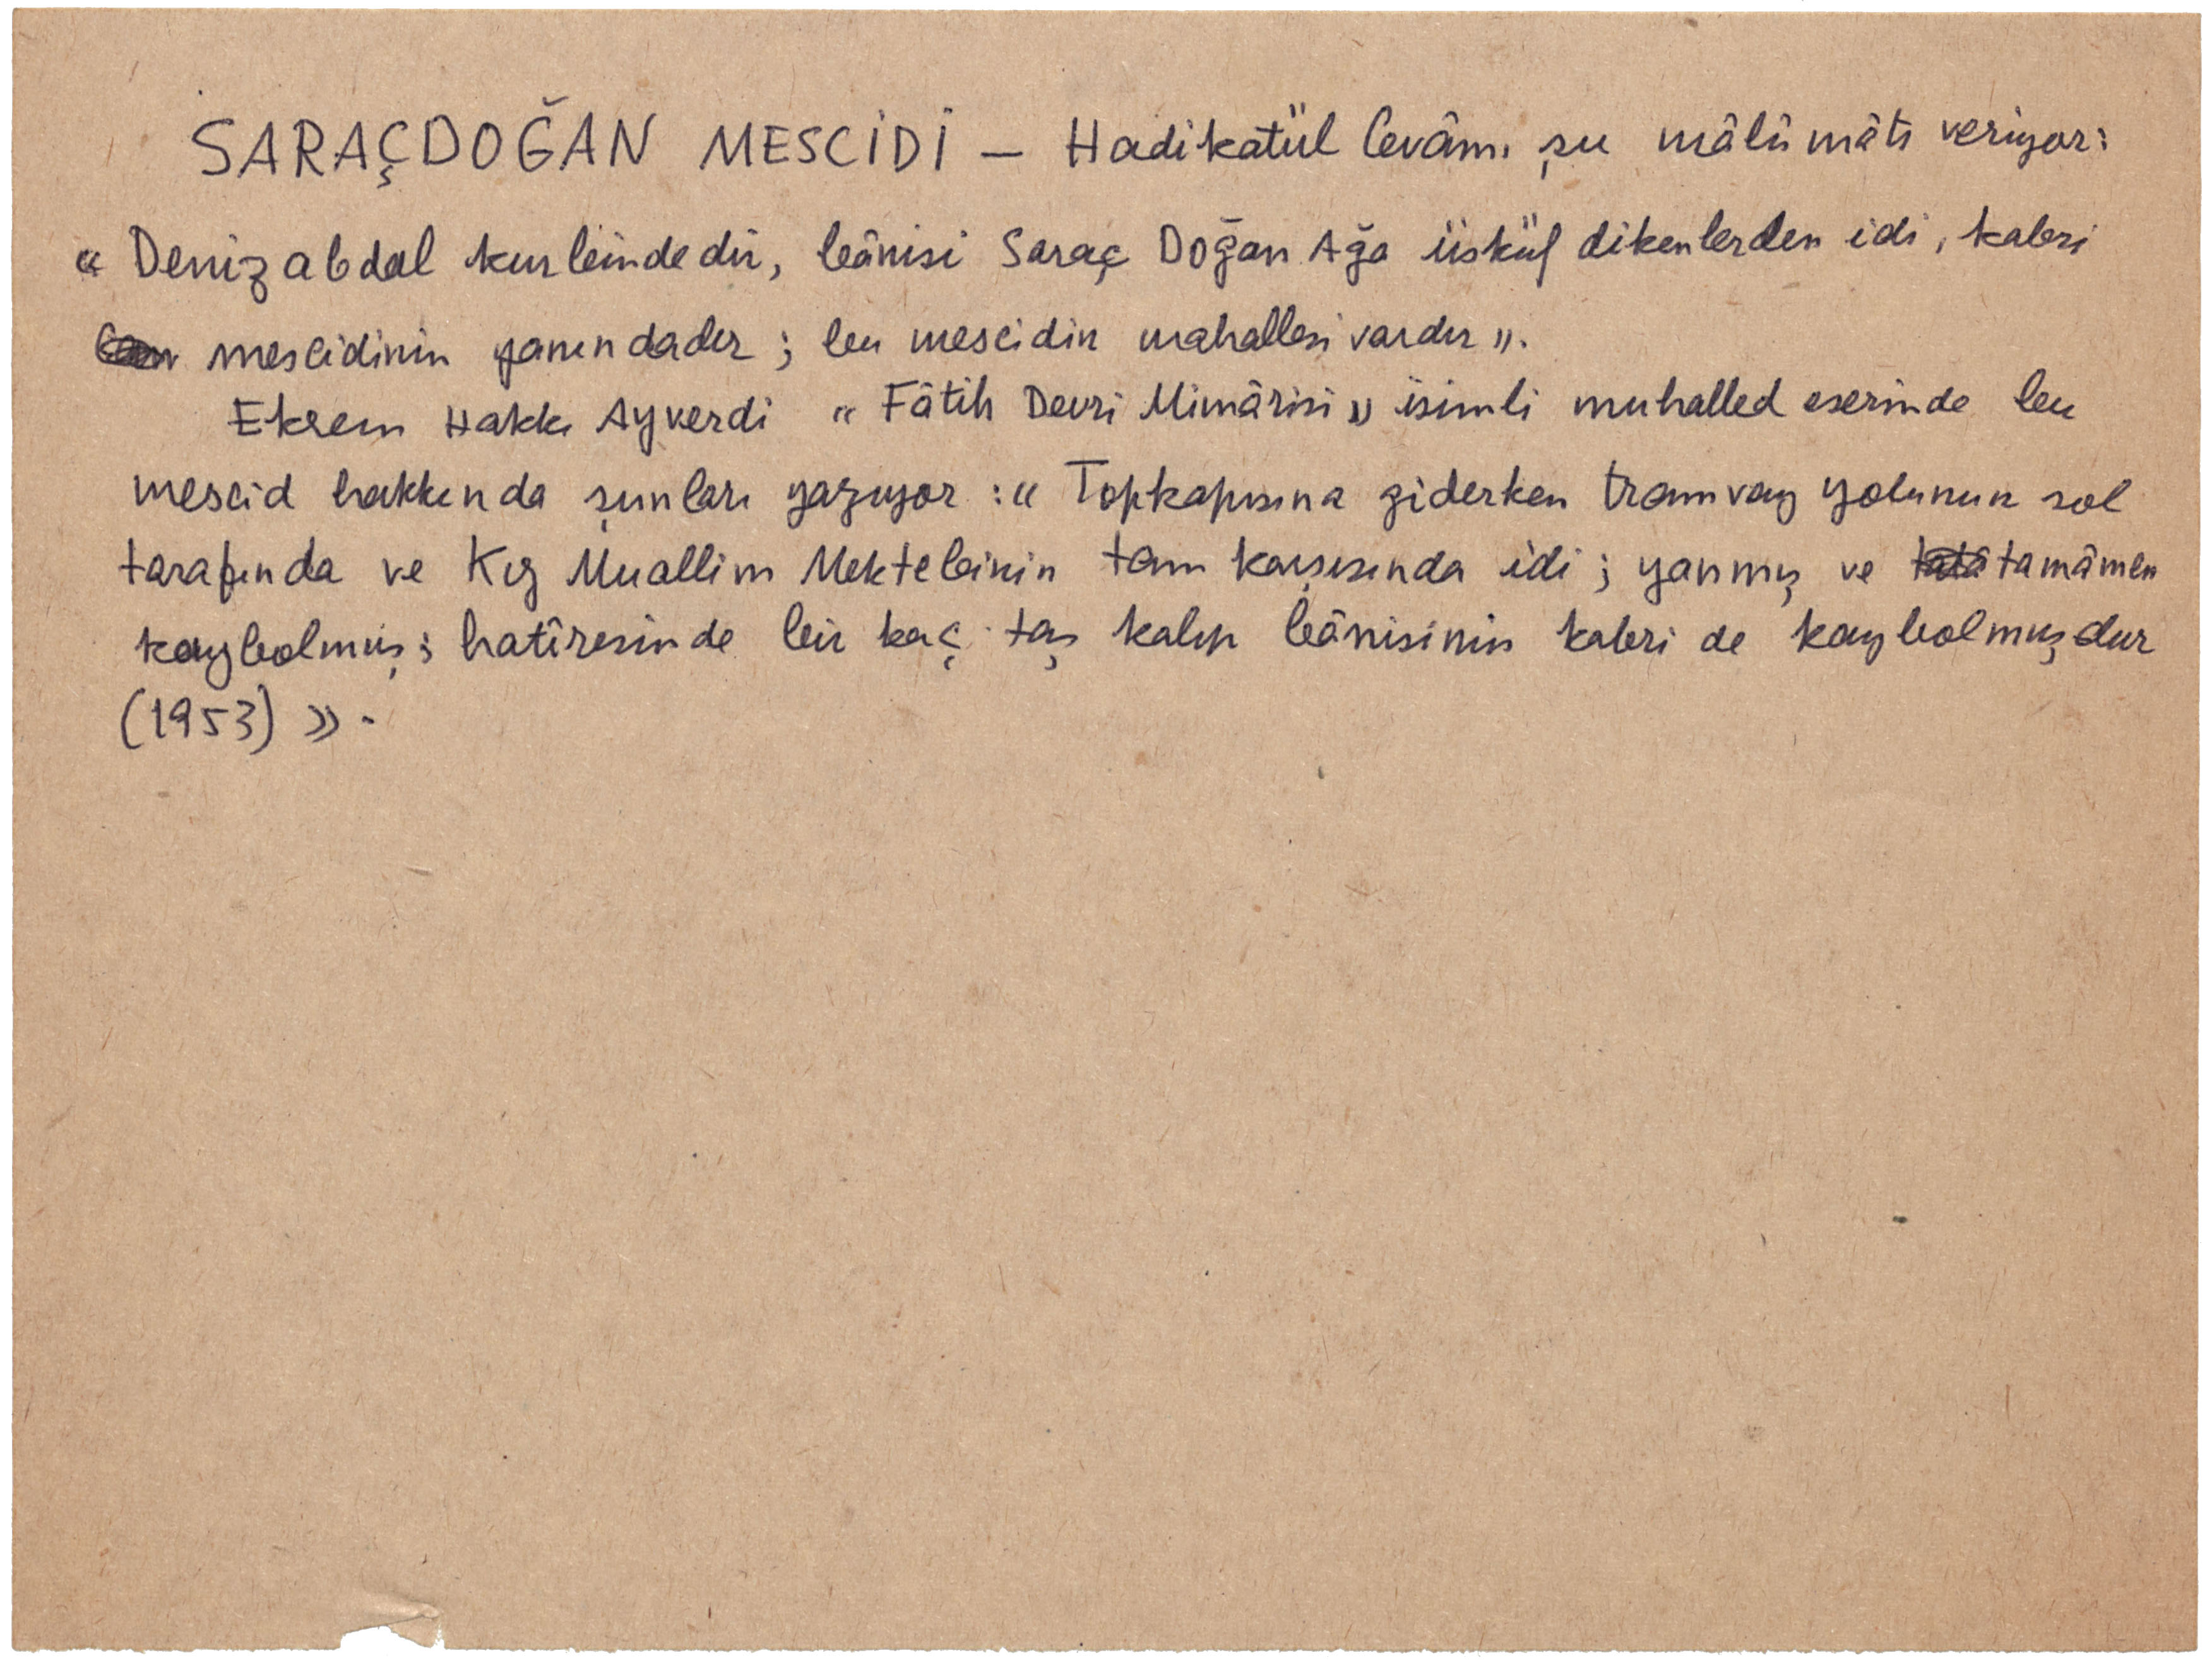 SARAÇDOĞAN MESCİDİ — Hadikatül Cevâmı şu mâlûmâtı veriyor:
« Denizabdal kurbindedir, bânisi Saraç Doğan Ağa üsküf dikenlerden idi, kabri
mescidinin yanındadır ; bu mescidin mahallesi vardır ».
Ekrem Hakkı Ayverdi « Fâtih Devri Mimârisi » isimli muhalled eserinde bu
mescid hakkında şunları yazıyor : « Topkapusına giderken tramvay yolunun sol
tarafında ve Kız Muallim Mektebinin tam karşısında idi ; yanmış ve tamâmen
kaybolmuş ; hatîresinde bir kaç taş kalıp bânisinin kabri de kaybolmuşdur
(1953) » .